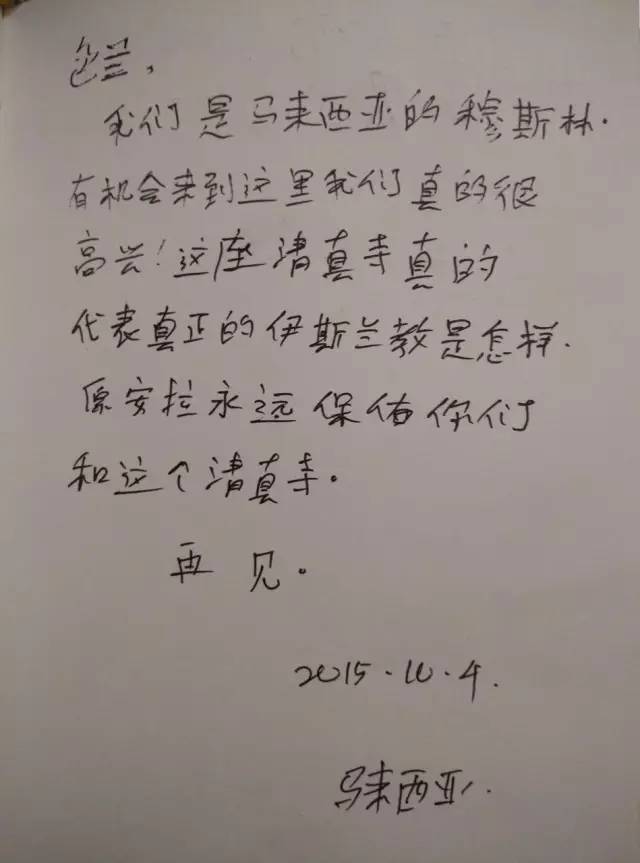 色兰,
我们是马来西亚的穆斯林.
有机会来到这里我们真的很
高兴!这座清真寺真的
代表真正的伊斯兰教是怎样.
原安拉永远保佑你们
和这个清真寺。
再见。
2015.10.4.
马来西亚.